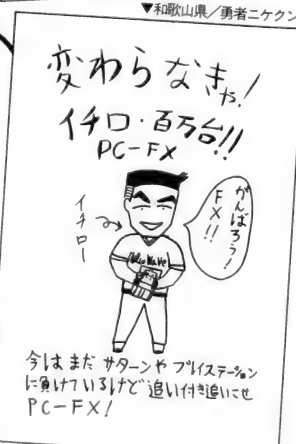 ▼和歌山県／勇者ニケクン
変わらなきゃ!
イチロ・百万台!!
PC-FX
がんばろう!
FX!!
イチロー
Blue Wave
今はまだ サターンや プレイステーション
に負けているけど 追い付き追いこせ
PC-FX!